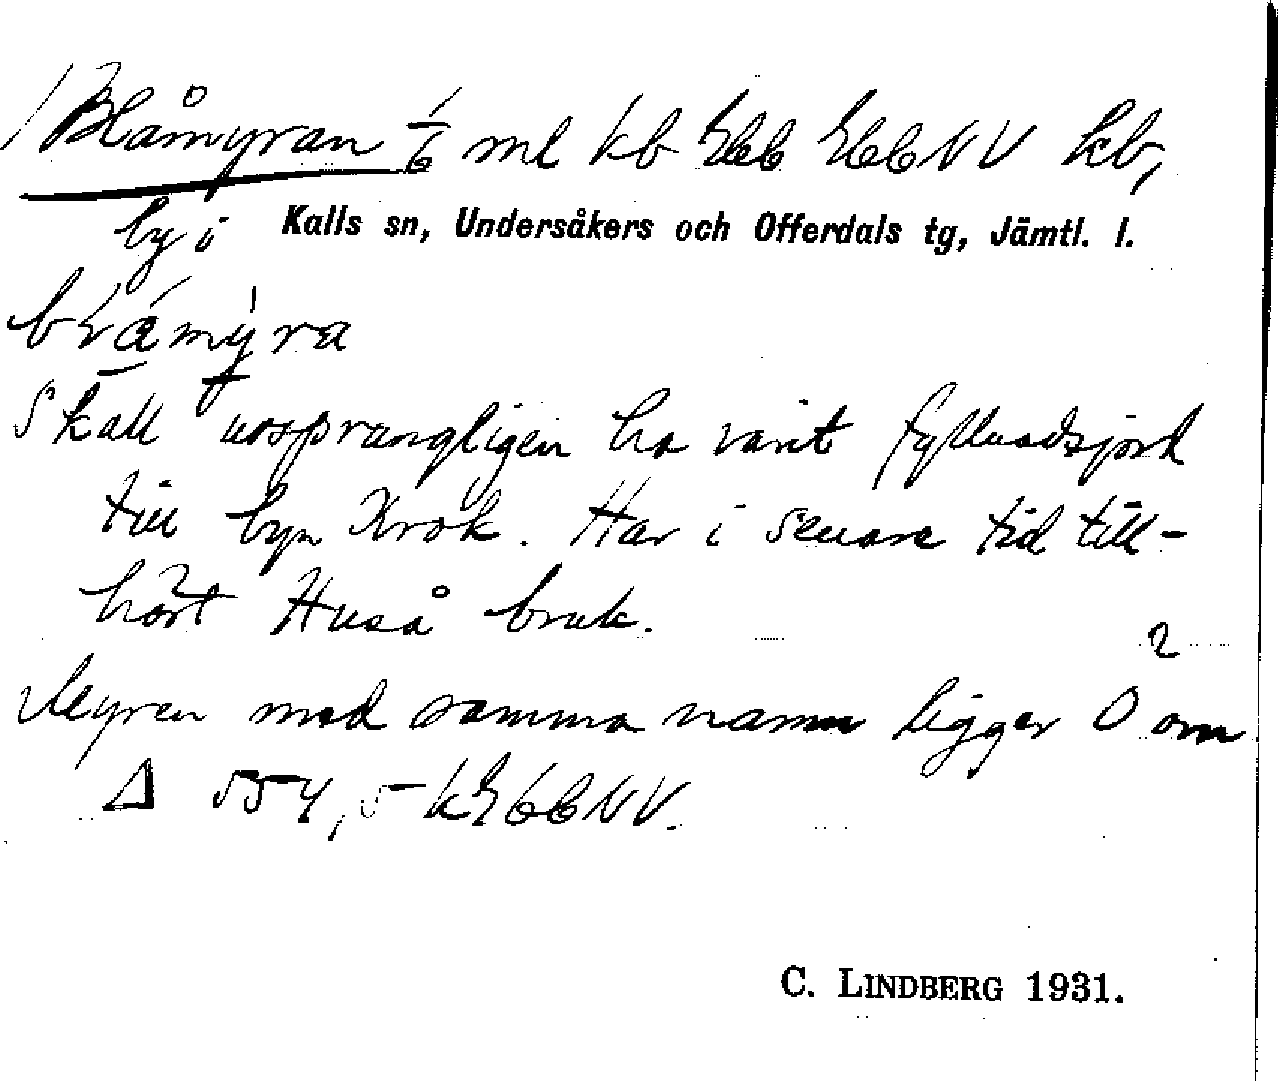 Blåmyran 1/6 ml kb Ebb EbbNV kb,
by i Kalls sn, Undersåkers och Offerdals tg, Jämtl. l.
Skall ursprungligen ha varit fyllnadsjord
till byn Krok. Har i senare tid till-
hört Huså bruk.
Myren med samma namn ligger Ö om
Δ 554,5 kEbbNV.
C. LINDBERG 1931.